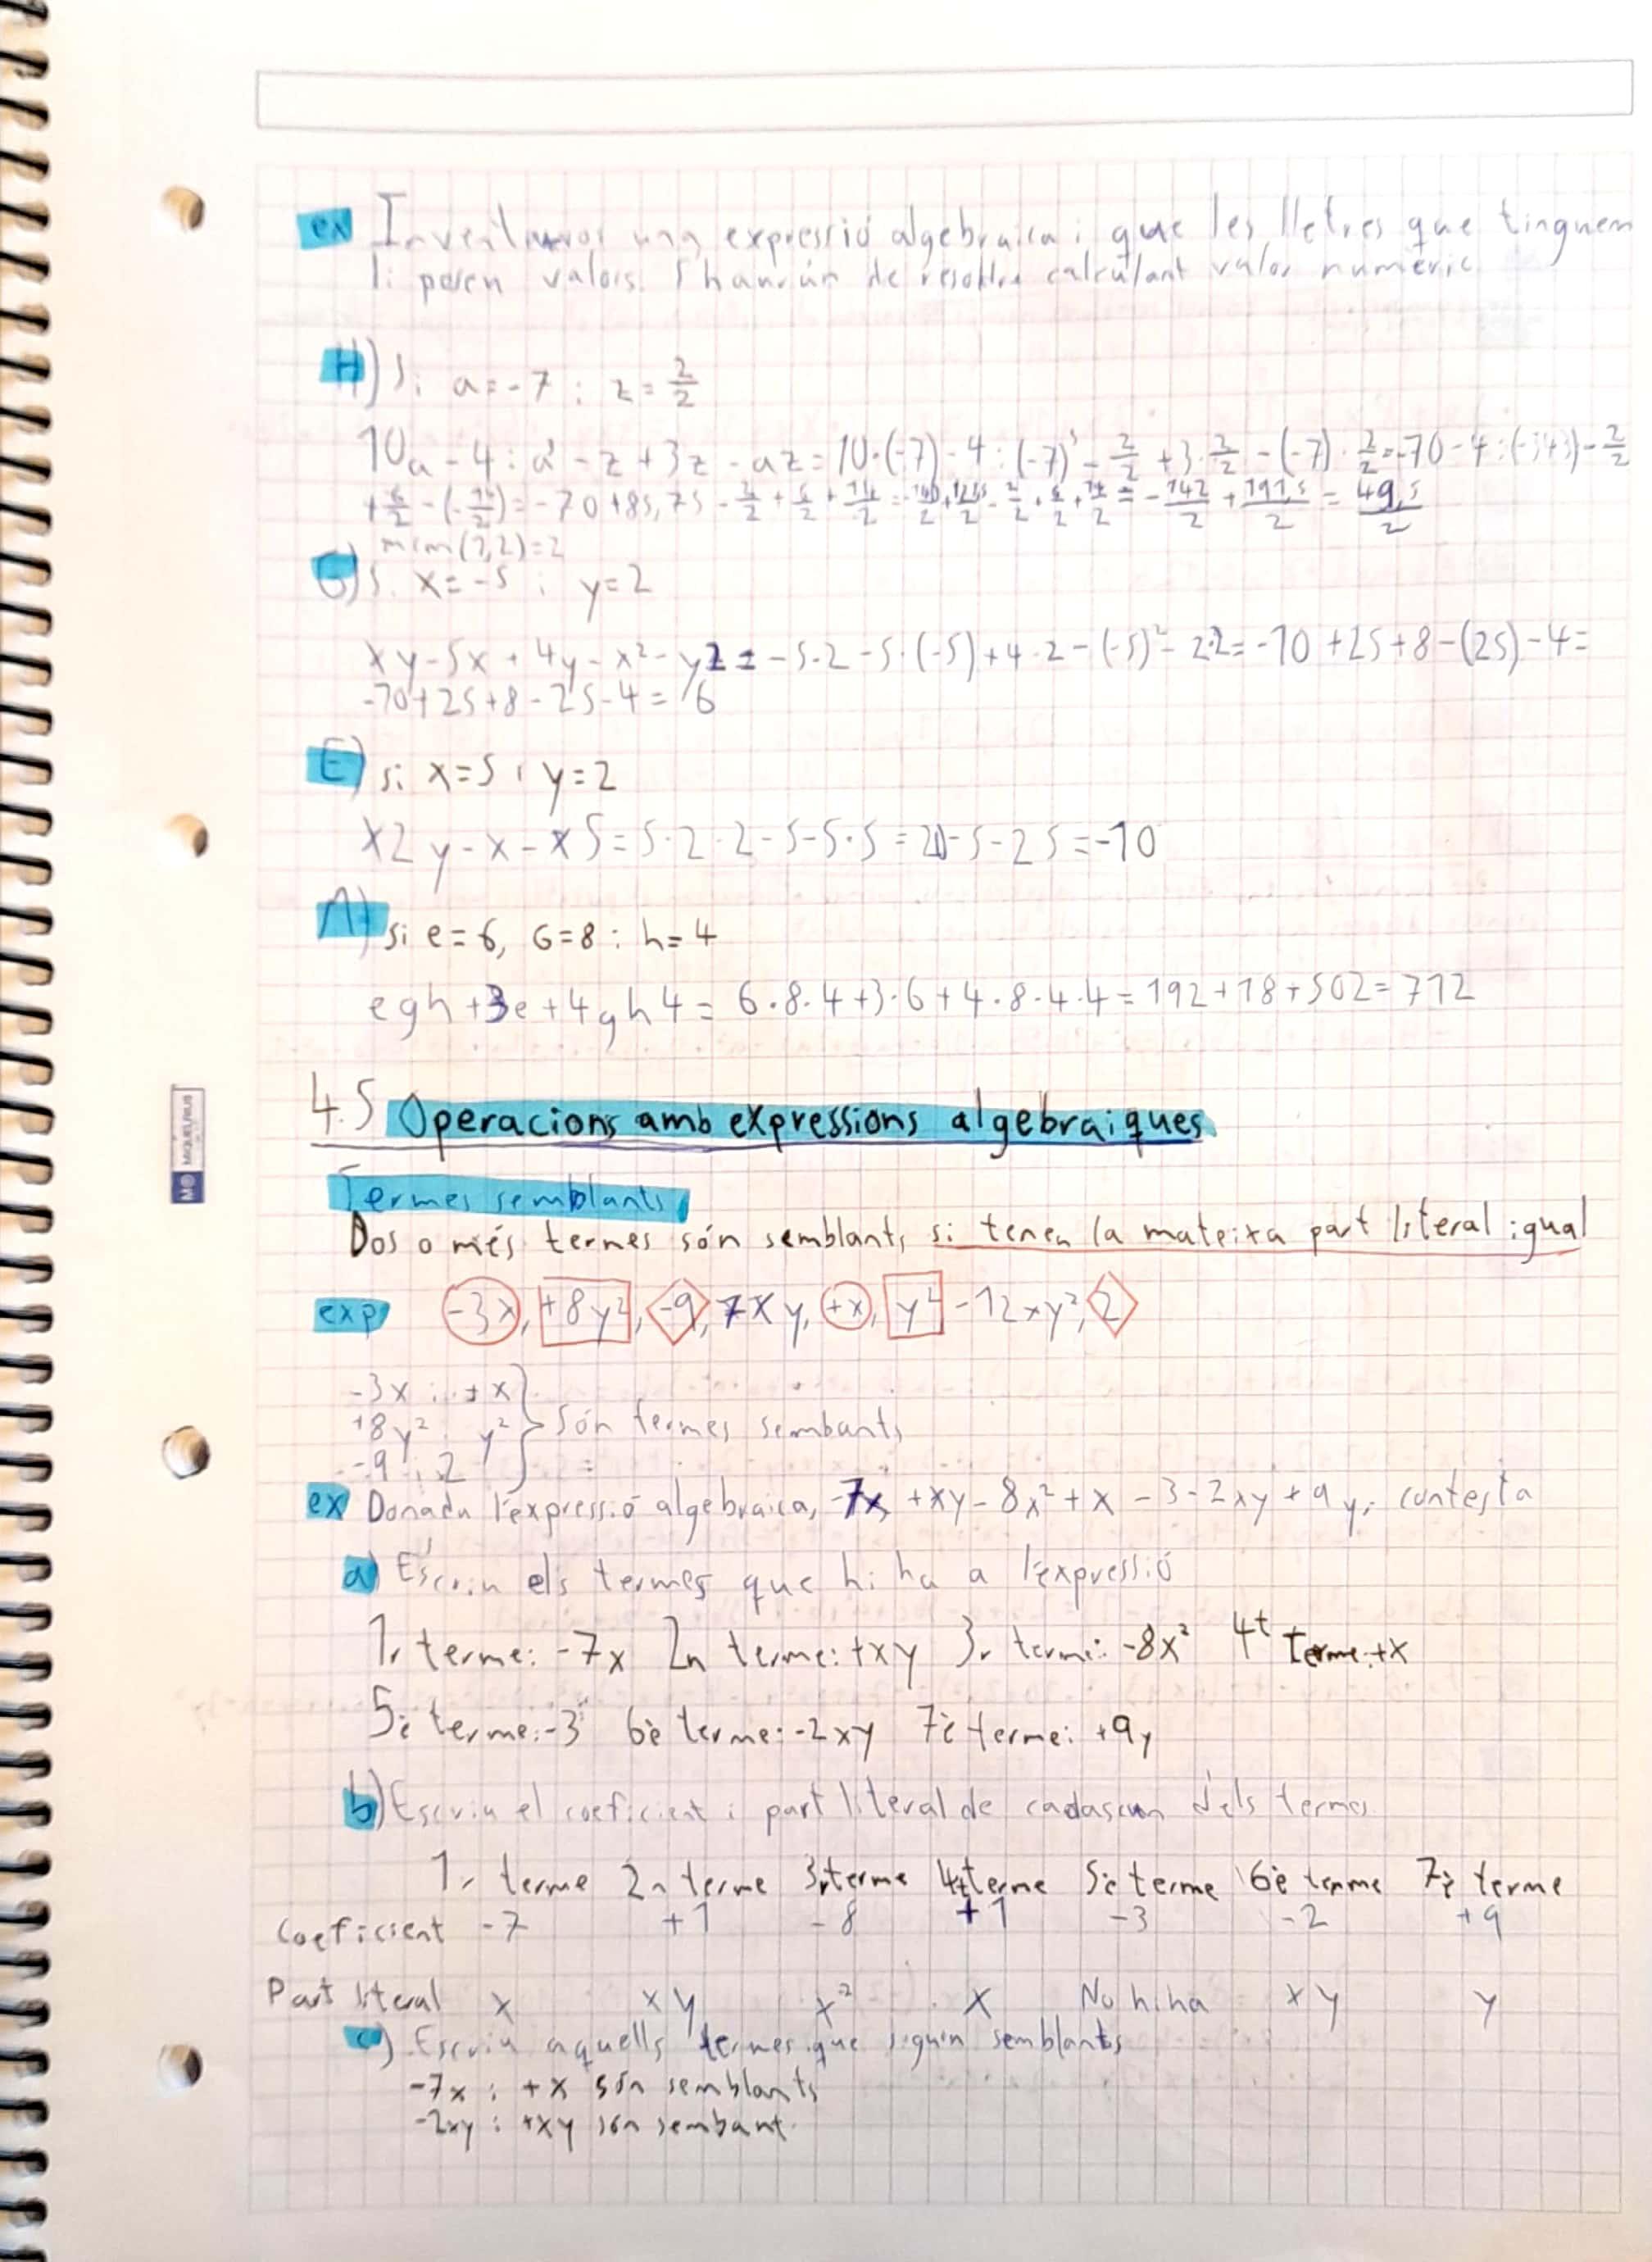 ex Inventarnos una expressió algebraica i que les lletres que tinguem
li posen valors. S'hauran de resoldre calculant valor numèric
H) Si a=-7 i z=2/2
10a-4:a³-z+3z-az=10·(-7)-4:(-7)³-2/2+3·2/2-(-7)·2/2=-70-4:(-343)-2/2
+6/2-(-14/2)=-70+85,75-2/2+6/2+14/2= -2/2+6/2+14/2=-142/2+191,5/2=49,5/2
mcm(2,2)=2
G) Si x=-5 i y=2
xy-5x+4y-x²-y2=-5·2-5·(-5)+4·2-(-5)²-2·2=-10+25+8-(25)-4=
-10+25+8-25-4=6
E) si x=5 i y=2
x2y-x-x5=5·2·2-5-5·5=20-5-25=-10
A) si e=6, G=8 i h=4
egh+3e+4gh4=6·8·4+3·6+4·8·4·4=192+18+502=712
4.5 Operacions amb expressions algebraiques
Termes semblants
Dos o més termes són semblants si tenen la mateixa part literal igual
exp -3x, +8y², -9, 7xy, +x, y² -12xy², 2
-3x i +x
+8y² i y² } Són termes sembants
-9 i 2
ex Donada l'expressió algebraica, -7x +xy-8x²+x-3-2xy+9y, contesta
a) Escriu els termes que hi ha a l'expressió
1r terme: -7x 2n terme: +xy 3r terme: -8x² 4t terme: +x
5è terme: -3 6è terme: -2xy 7è terme: +9y
b) Escriu el coeficient i part literal de cadascun dels termes
1r terme 2n terme 3r terme 4t terme 5è terme 6è terme 7è terme
Coeficient -7 +1 -8 +1 -3 -2 +9
Part literal x xy x² x No hi ha xy y
c) Escriu aquells termes que siguin semblants
-7x i +x són semblants
-2xy i +xy són sembant.
MIQUELRIUS